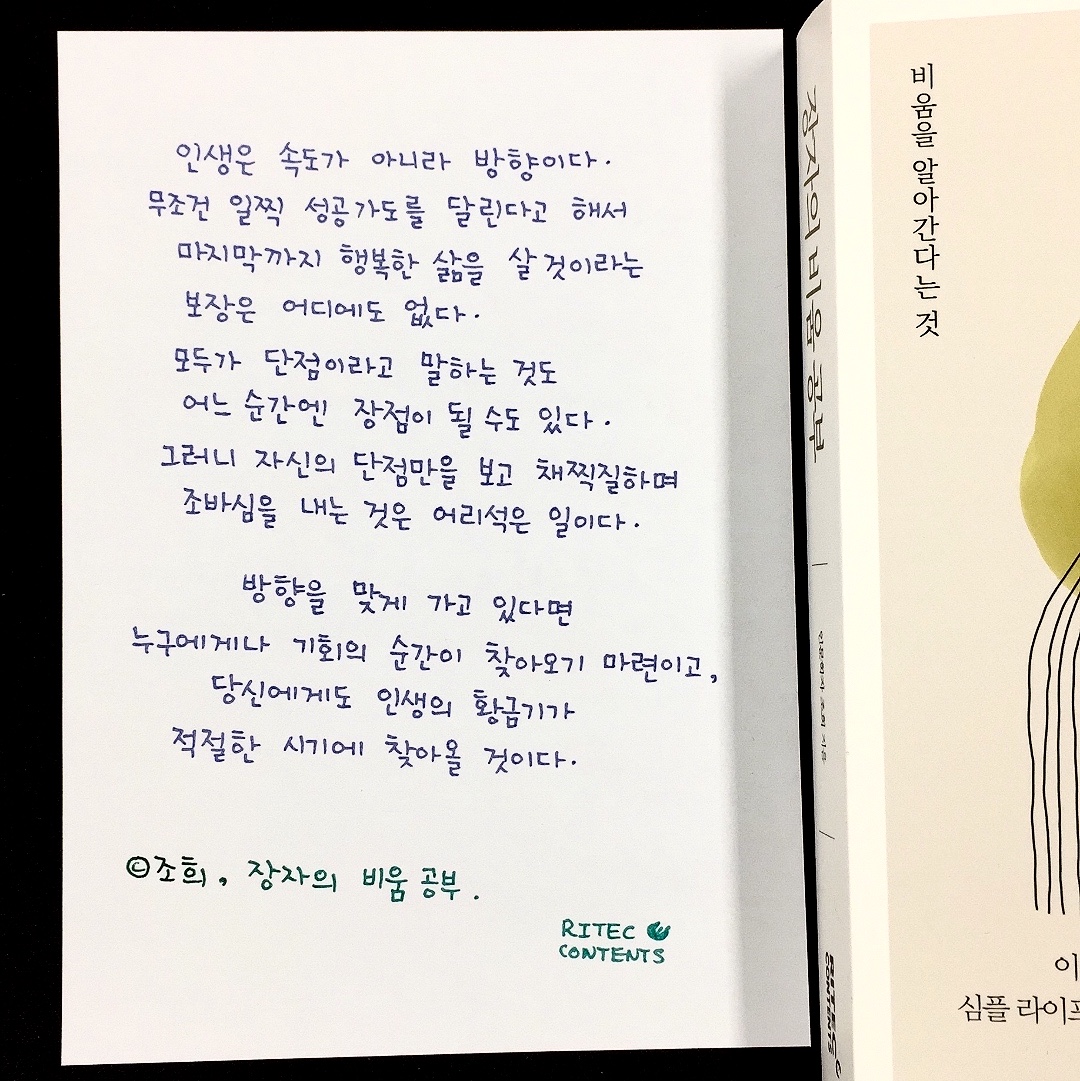 인생은 속도가 아니라 방향이다.
무조건 일찍 성공가도를 달린다고 해서
마지막까지 행복한 삶을 살 것이라는
보장은 어디에도 없다.
모두가 단점이라고 말하는 것도
어느 순간엔 장점이 될 수도 있다.
그러니 자신의 단점만을 보고 채찍질하며
조바심을 내는 것은 어리석은 일이다.
방향을 맞게 가고 있다면
누구에게나 기회의 순간이 찾아오기 마련이고,
당신에게도 인생의 황금기가
적절한 시기에 찾아올 것이다.
©조희, 장자의 비움 공부.
RITEC
CONTENTS
장자의 비움 공부
인문학자 조희 지음
RITEC
CONTENTS
비움을 알아간다는 것
이
심플 라이프